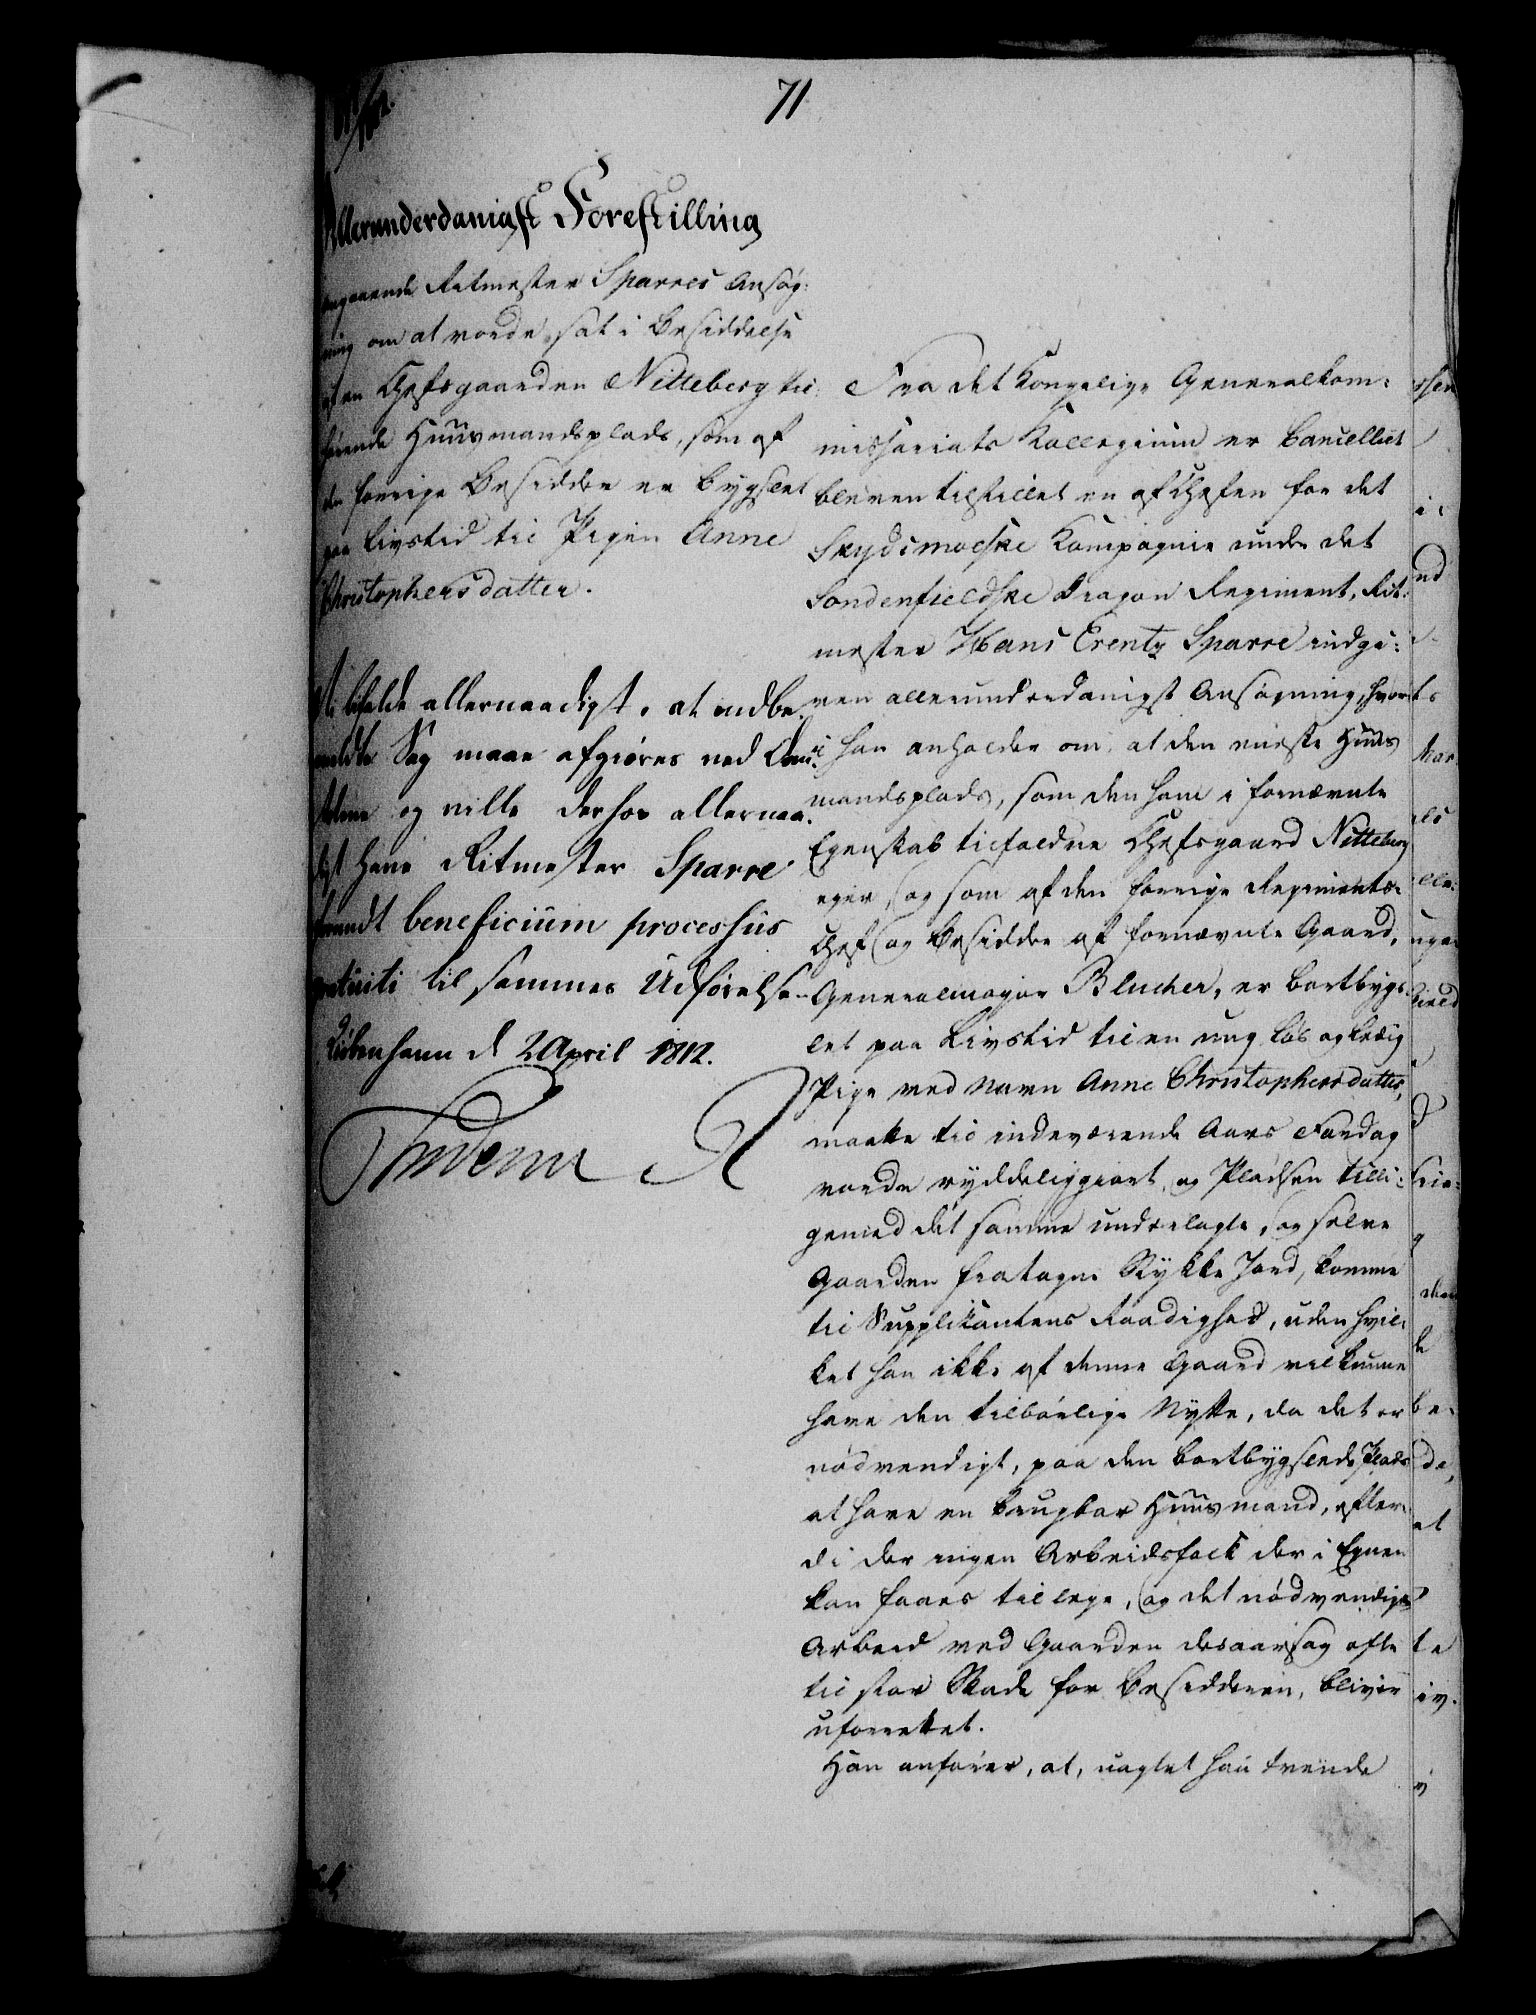 71
Allerunderdanigst Forestilling
angaaende Ritmester Sparres Ansøg:
ning om at vorde sat i Besiddelse
af en Chefsgaarden Nitteberg til
hørende Huusmandsplads, som af
den forrige Besidder er bygslet
paa Livstid til Pigen Anne
Christophersdatter.
Vi bifalde allernaadigst, at indbe
meldte Sag maae afgiøres ved Dom
og ville derhos allernaa
digst have Ritmester Sparre
forundt beneficium processus
gratuiti til sammes Udførelse.
Kiøbenhavn d 2 April 1812.
Frederik R
Fra det Kongelige Generalkom:
missariats Kollegium er Cancelliet
bleven tilstillet en af Chefen for det
Skydsmoeske Kompagnie under det
Søndenfieldske Dragon Regiment, Rit:
mester Hans Erentz Sparre indgi:
ven allerunderdanigst Ansøgning, hvor
i han anholder om, at den eneste Huus
mandsplads, som den ham i fornævnte
Egenskab tilfaldne Chefsgaard Nitteberg
eier, og som af den forrige Regiments:
Chef og Besidder af fornævnte Gaard,
Generalmajor Blucher, er bortbygs
let paa Livstid til en ung løs og ledig
Pige ved Navn Anne Christophersdatter,
maatte til indeværende Aars Fardag
vorde ryddeliggiort, og Pladsen tilli:
gemed det samme underlagte, og selve
Gaarden fratagne Stykke Jord, komme
til Supplikantens Raadighed, uden hvil:
ket han ikke af denne Gaard vil kunne
have den tilbørlige Nytte, da det er
nødvendigt, paa den bortbygslede Plads
at have en brugbar Huusmand, efter:
di der ingen Arbeidsfolk der i Egnen
kan faaes tilleye, og det nødvendige
Arbeid ved Gaarden desaarsag ofte
til stor Skade for Besidderen, bliver
uforrettet.
Han anfører, at, uagtet han tvende